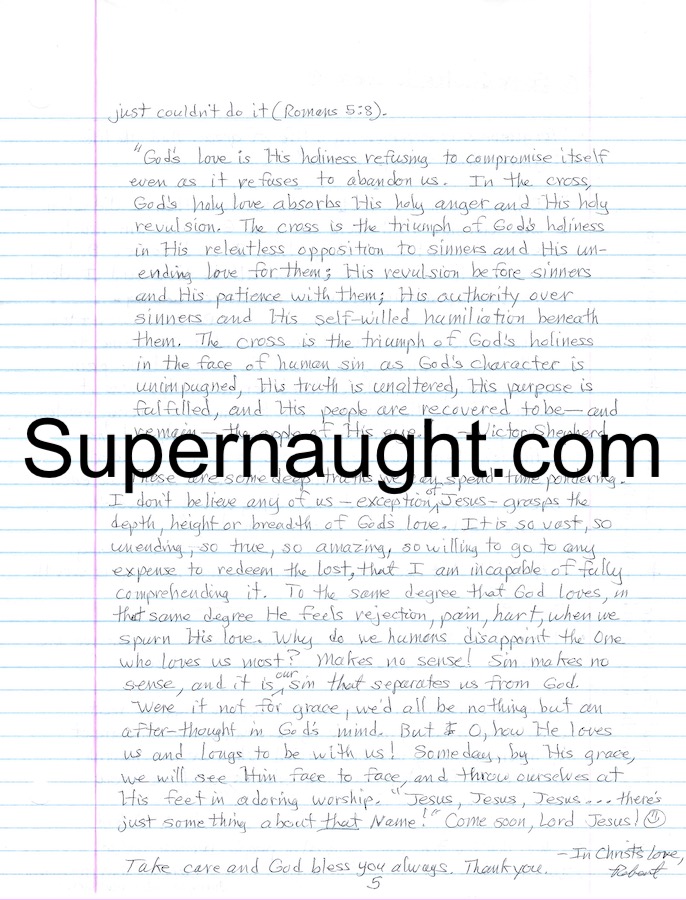 just couldn't do it (Romans 5:8).
"God's love is His holiness refusing to compromise itself
even as it refuses to abandon us. In the cross,
God's holy love absorbs His holy anger and His holy
revulsion. The cross is the triumph of God's holiness
in His relentless opposition to sinners and His un-
ending love for them; His revulsion before sinners
and His patience with them; His authority over
sinners and His self-willed humiliation beneath
them. The cross is the triumph of God's holiness
in the face of human sin as God's character is
unimpugned, His truth is unaltered, His purpose is
fulfilled, and His people are recovered to be — and
remain — the apple of His eye. Victor Shepherd
Supernaught.com
Those are some deep truths we may spend time pondering.
I don't believe any of us — exception of Jesus — grasps the
depth, height or breadth of God's love. It is so vast, so
unending, so true, so amazing, so willing to go to any
expense to redeem the lost, that I am incapable of fully
comprehending it. To the same degree that God loves, in
that same degree He feels rejection, pain, hurt, when we
spurn His love. Why do we humans disappoint the One
who loves us most? Makes no sense! Sin makes no
sense, and it is our sin that separates us from God.
Were it not for grace, we'd all be nothing but an
after-thought in God's mind. But O, how He loves
us and longs to be with us! Someday, by His grace,
we will see Him face to face, and throw ourselves at
His feet in adoring worship. "Jesus, Jesus, Jesus.... there's
just something about that Name!" Come soon, Lord Jesus!
- In Christ's love,
Take care and God bless you always. Thank you. Robert
5